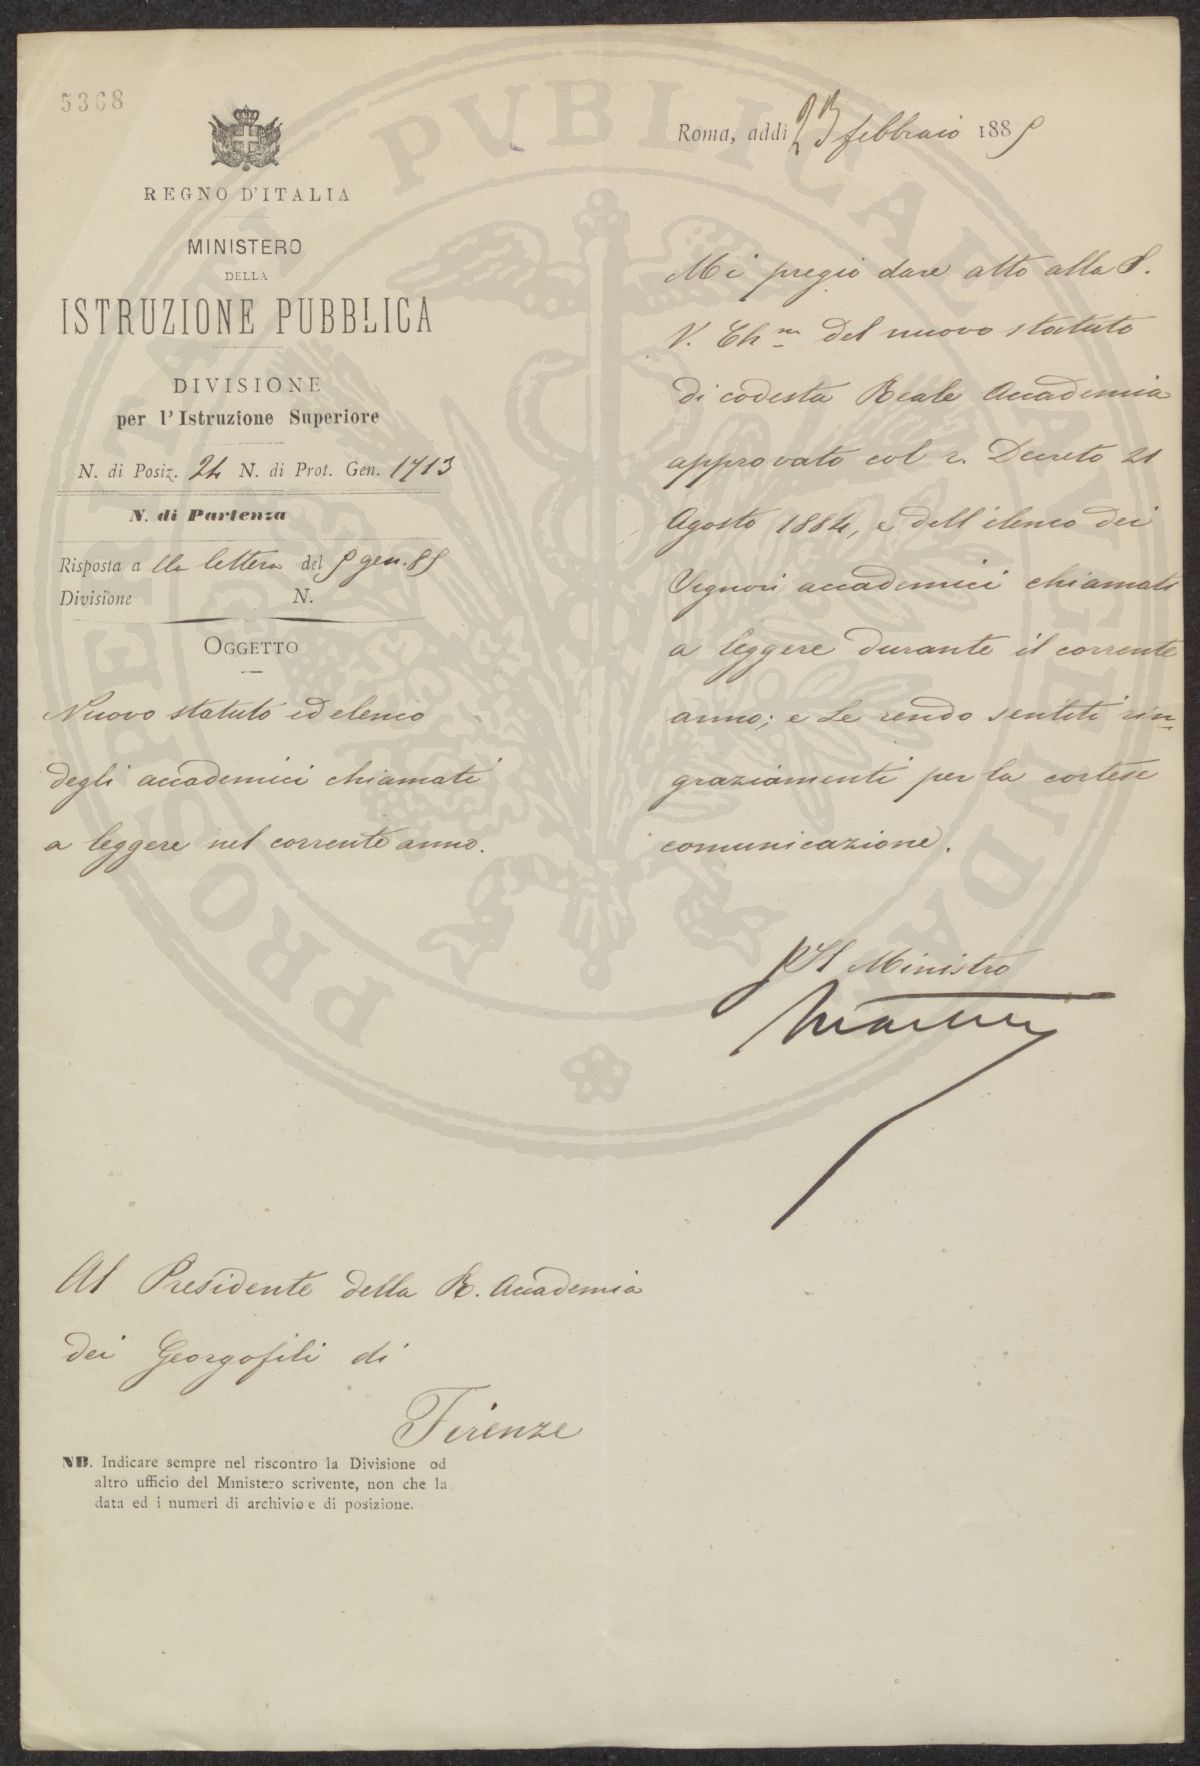 5368
REGNO D'ITALIA
MINISTERO
DELLA
ISTRUZIONE PUBBLICA
DIVISIONE
per l'Istruzione Superiore
N. di Posiz. 24 N. di Prot. Gen. 1713
N. di Partenza
Risposta a lla lettera del 5 gen. 85
Divisione N.
OGGETTO
Nuovo statuto ed elenco
degli accademici chiamati
a leggere nel corrente anno.
Roma, addì 23 febbraio 1885
Mi pregio dare atto alla S.
V. Ch.ma del nuovo statuto
di codesta Reale Accademia
approvato col r. Decreto 21
Agosto 1884, e dell'elenco dei
Signori accademici chiamati
a leggere durante il corrente
anno; e Le rendo sentiti rin-
graziamenti per la cortese
comunicazione.
pel Ministro
Martini
Al Presidente della R. Accademia
dei Georgofili di
Firenze
NB. Indicare sempre nel riscontro la Divisione od
altro ufficio del Ministero scrivente, non che la
data ed i numeri di archivio e di posizione.
PROSPERITATI PVBLICAE AVGENDAE